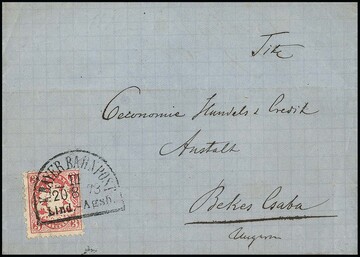 Tit.
Oeconomie Handels & Credit
Anstalt
Bekes Csaba
Ungarn
K. BAYER. BAHNPOST
20 8 73
Lind. Agsb.